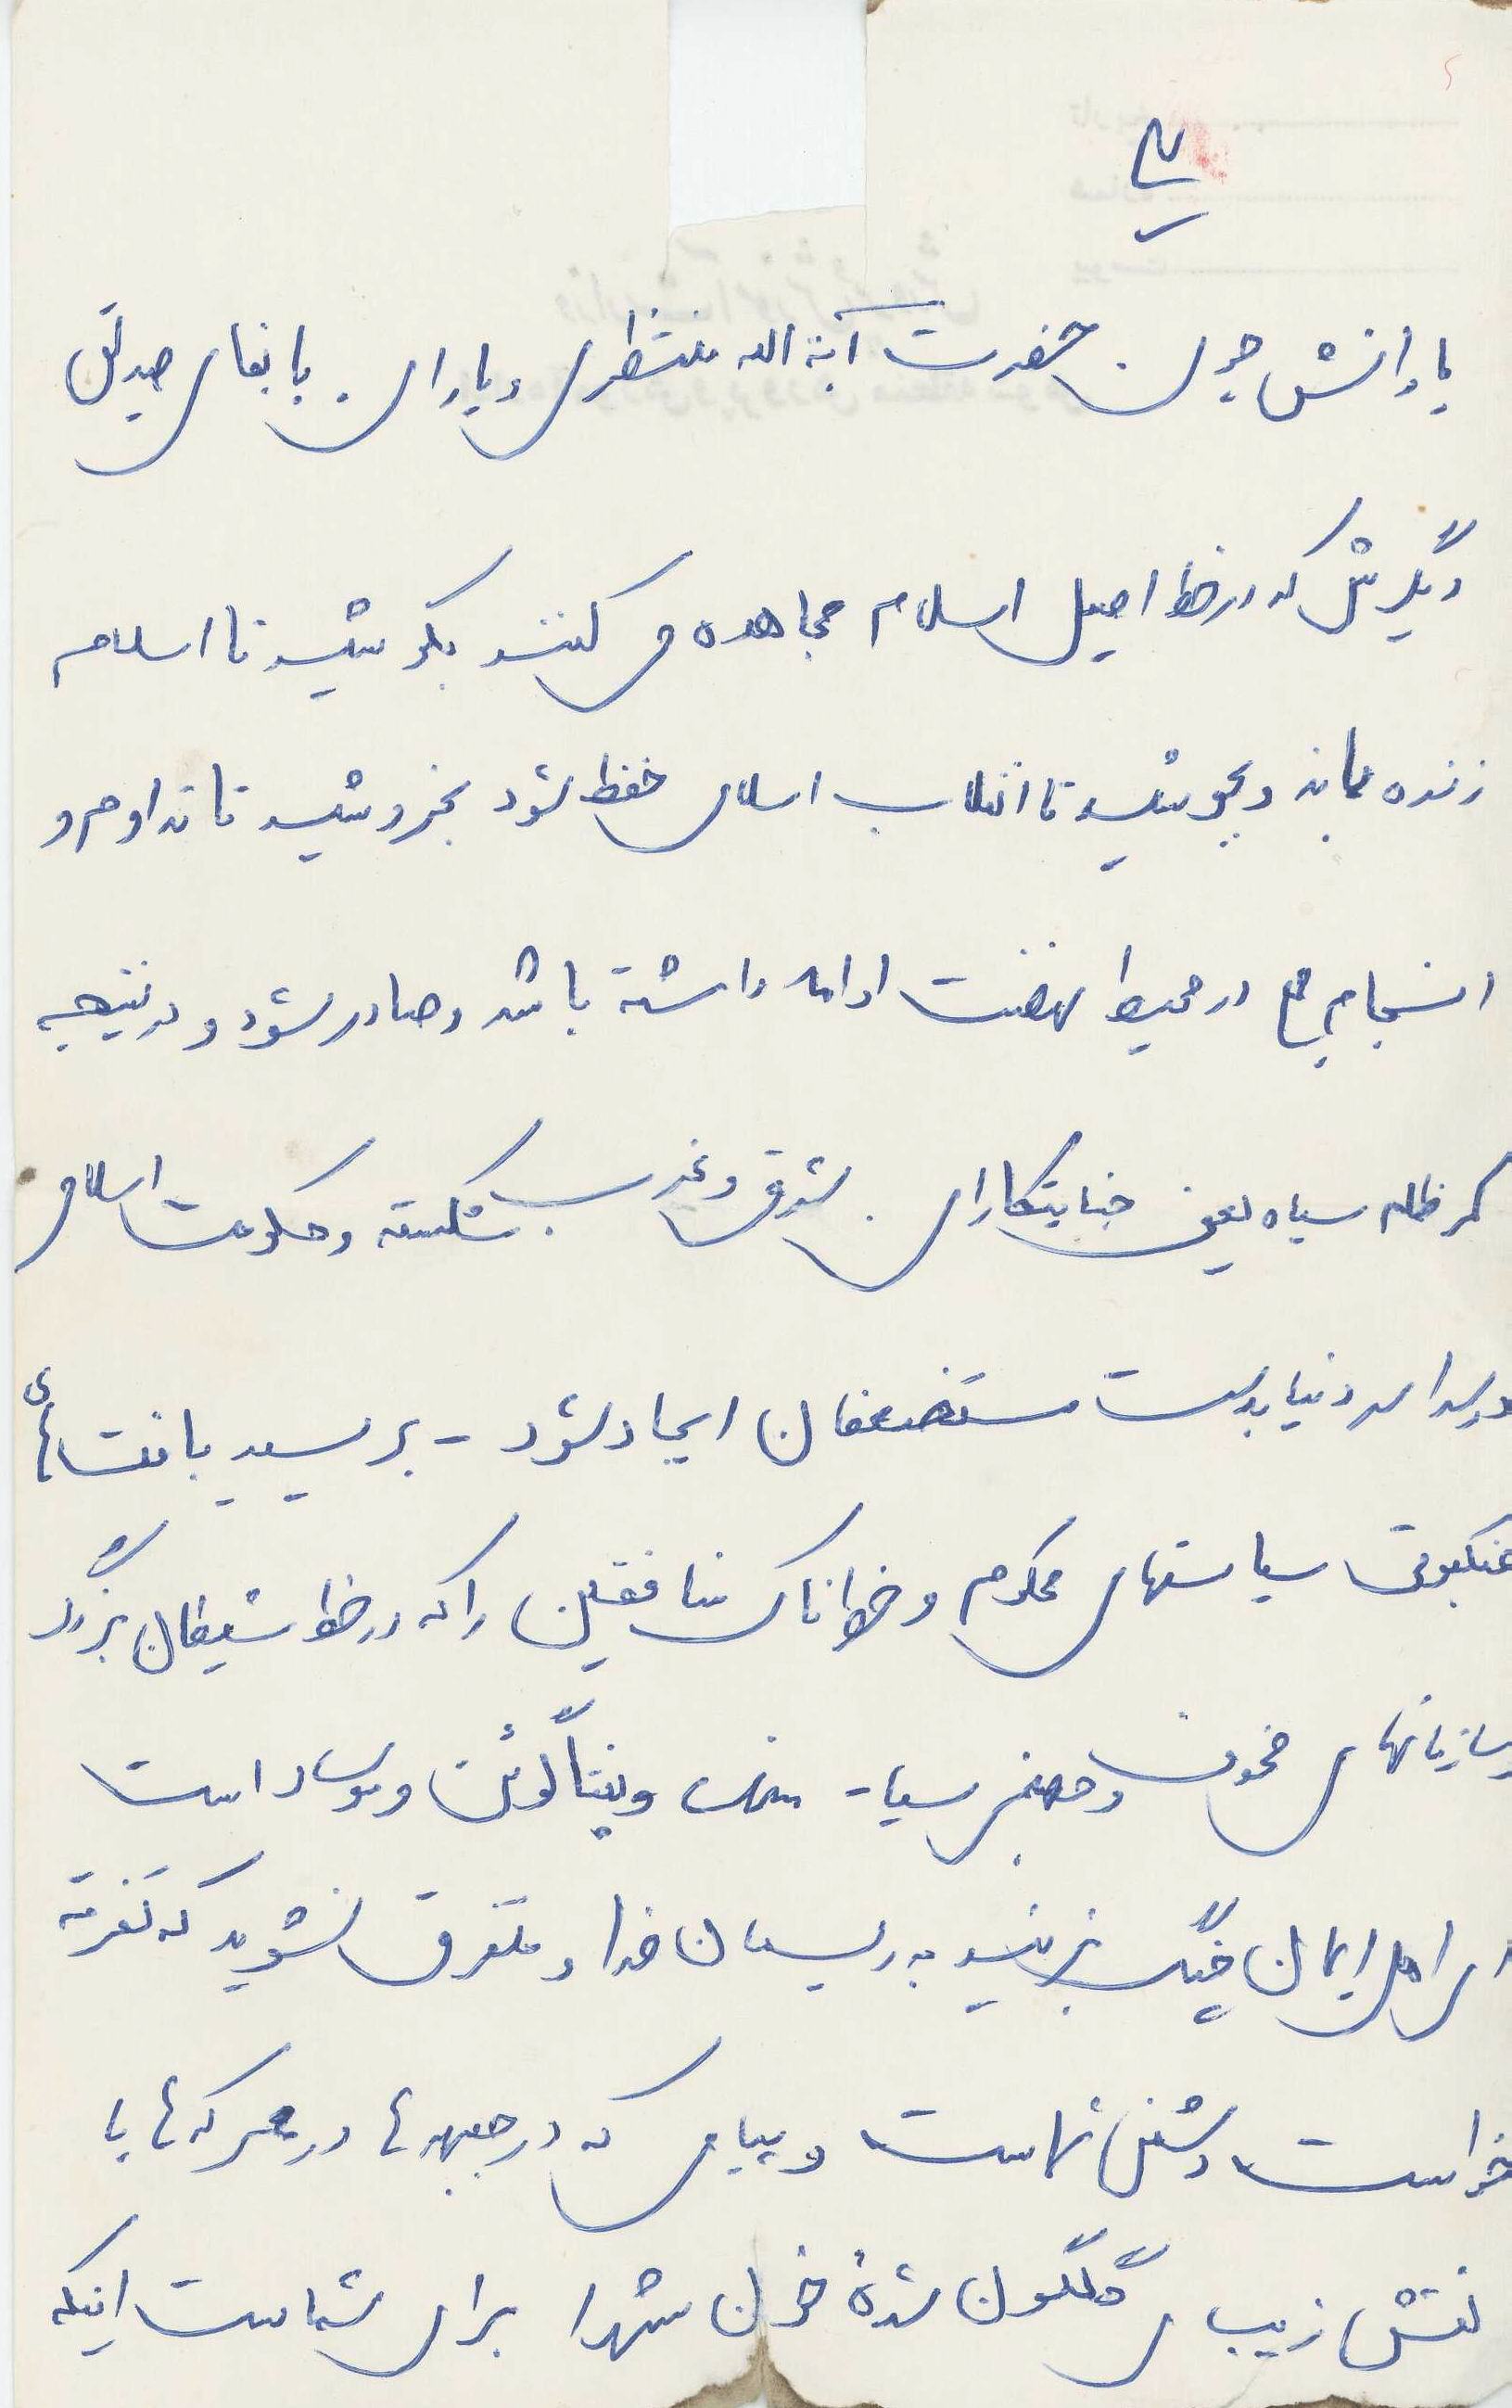 یارانش چون حضرت آیة الله منتظری و یاران با بقای صدیق
دیگرش که در خط اصیل اسلام مجاهده می کنند بکوشید تا اسلام
زنده بماند و بجوشید تا انقلاب اسلامی حفظ شود بخروشید تا تداوم و
انسجام در محیط نهضت ادامه داشته باشد و صادر شود و در نتیجه
کمر ظلم سیاه یعنی جنایتکاران شرق و غرب شکسته و حکومت اسلامی
در دنیا بدست مستضعفان ایجاد شود - بررسید بافتهای
عنکبوتی سیاستهای محکوم و خطرناک منافقین را که در خط شیطان بزرگ
و سازمانهای مخوف و جهنمی سیا - و پنتاگون و موساد است
ای اهل ایمان چنگ بزنید به ریسمان خدا و متفرق نشوید که تفرقه
خواست دشمن شماست و پیامی که در جبهه ها در معرکه ها با
نقش زیبای گلگون شدهٔ خون شهدا برای شماست اینکه